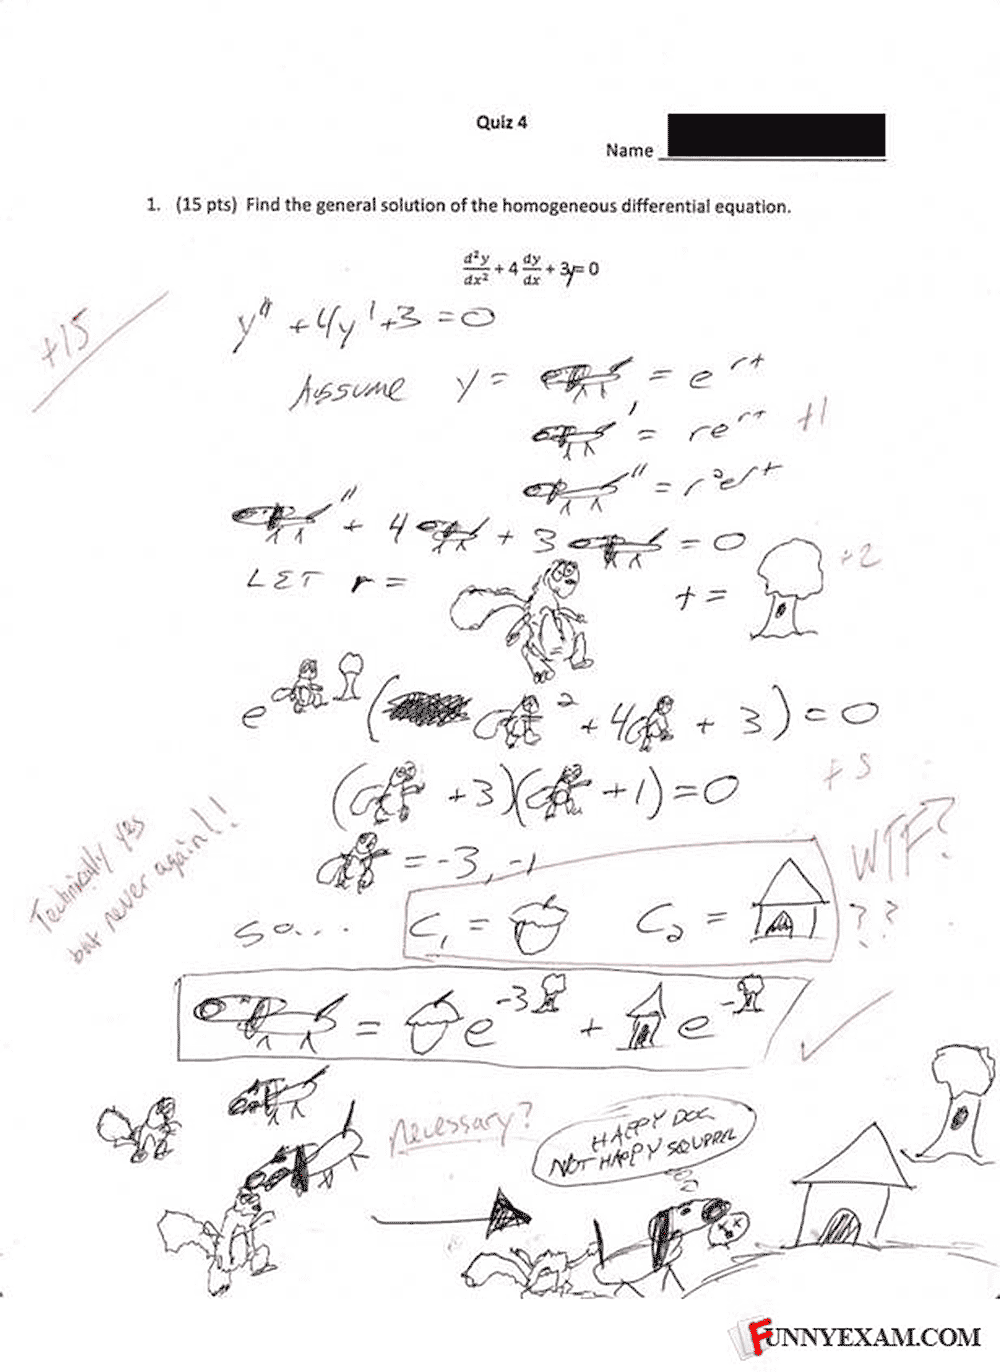 Quiz 4
Name
1. (15 pts) Find the general solution of the homogeneous differential equation.
d²y/dx² + 4 dy/dx + 3y = 0
+15
y'' + 4y' + 3 = 0
ASSUME y = = e^rt
' = re^rt +1
'' = r²e^rt
'' + 4 + 3 = 0
LET r = t = +2
e ( ² + 4 + 3) = 0
( + 3)( + 1) = 0 +5
= -3, -1
Technically yes
but never again!!
WTF?
??
SO... C₁ = C₂ =
= e^-3 + e^-
necessary?
HAPPY DOG
NOT HAPPY SQUIRREL
FUNNYEXAM.COM